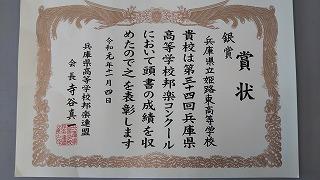 賞状
銀賞
兵庫県立姫路東高等学校
貴校は第三十四回兵庫県
高等学校邦楽コンクール
において頭書の成績を収
めたので之を表彰します
令和元年十一月四日
兵庫県高等学校邦楽連盟
会長 寺谷真一